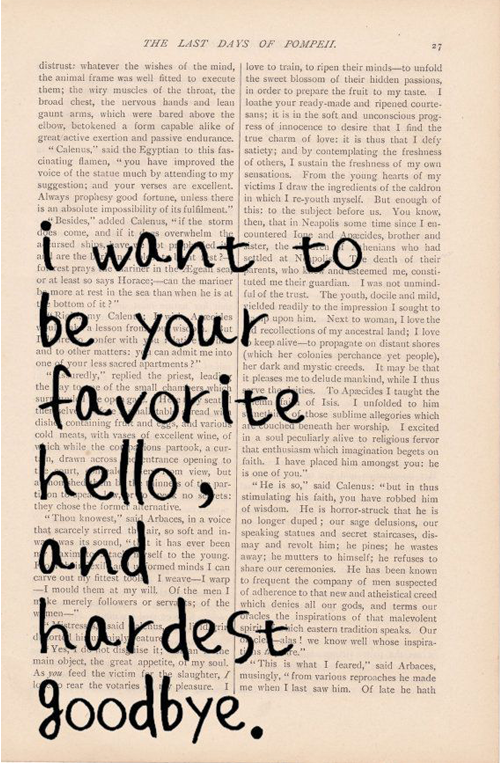 THE LAST DAYS OF POMPEII. 27
i want to
be your
favorite
hello,
and
hardest
goodbye.
distrust: whatever the wishes of the mind,
the animal frame was well fitted to execute
them; the wiry muscles of the throat, the
broad chest, the nervous hands and lean
gaunt arms, which were bared above the
elbow, betokened a form capable alike of
great active exertion and passive endurance.
“Calenus,” said the Egyptian to this fas-
cinating flamen, “you have improved the
voice of the statue much by attending to my
suggestion; and your verses are excellent.
Always prophesy good fortune, unless there
is an absolute impossibility of its fulfilment.”
“Besides,” added Calenus, “if the storm
come, and if it overwhelm the
are the
prays mariner in the Ægean sea
or at least so says Horace;—can the mariner
be more at rest in the sea than when he is at
bottom of it?”
Calenus
a lesson from
confer with
and to other matters: you can admit me into
one of your less sacred apartments?”
replied the priest,
of the small chambers
containing fruit and eggs, and various
cold meats, with vessels of excellent wine, of
which while the companions partook, a cur-
drawn across the entrance opening to
they chose the former alternative.
“Thou knowest,” said Arbaces, in a voice
that scarcely stirred the air, so soft and in-
was its sound, “
it has ever been
to the young.
minds I can
carve out my fittest tools. I weave—I warp
—I mould them at my will. Of the men I
make merely followers or servants; of the
women—”
said
main object, the great appetite, of my soul.
As you feed the victim for the slaughter, I
love to rear the votaries of my pleasure. I
love to train, to ripen their minds—to unfold
the sweet blossom of their hidden passions,
in order to prepare the fruit to my taste. I
loathe your ready-made and ripened courte-
sans; it is in the soft and unconscious prog-
ress of innocence to desire that I find the
true charm of love: it is thus that I defy
satiety; and by contemplating the freshness
of others, I sustain the freshness of my own
sensations. From the young hearts of my
victims I draw the ingredients of the caldron
in which I re-youth myself. But enough of
this: to the subject before us. You know,
then, that in Neapolis some time since I en-
countered Ione and Apæcides, brother and
sister, the Athenians who had
settled at Neapolis. The death of their
parents, who knew and esteemed me, consti-
tuted me their guardian. I was not unmind-
ful of the trust. The youth, docile and mild,
yielded readily to the impression I sought to
upon him. Next to woman, I love the
old recollections of my ancestral land; I love
to keep alive—to propagate on distant shores
(which her colonies perchance yet people),
her dark and mystic creeds. It may be that
it pleases me to delude mankind, while I thus
serve the deities. To Apæcides I taught the
of Isis. I unfolded to him
those sublime allegories which
are couched beneath her worship. I excited
in a soul peculiarly alive to religious fervor
that enthusiasm which imagination begets on
faith. I have placed him amongst you: he
is one of you.”
“He is so,” said Calenus: “but in thus
stimulating his faith, you have robbed him
of wisdom. He is horror-struck that he is
no longer duped; our sage delusions, our
speaking statues and secret staircases, dis-
may and revolt him; he pines; he wastes
away; he mutters to himself; he refuses to
share our ceremonies. He has been known
to frequent the company of men suspected
of adherence to that new and atheistical creed
which denies all our gods, and terms our
oracles the inspirations of that malevolent
spirit of which eastern tradition speaks. Our
alas! we know well whose inspira-
“This is what I feared,” said Arbaces,
musingly, “from various reproaches he made
me when I last saw him. Of late he hath